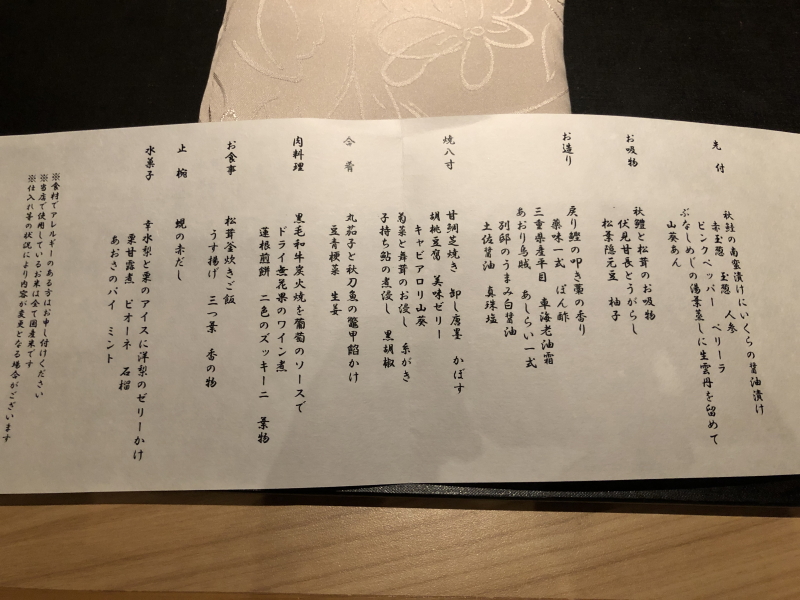 先付
秋鮭の南蛮漬けにいくらの醤油漬け
赤玉葱 玉葱 人参
ピンクペッパー ペリーラ
ぶなしめじの湯葉蒸しに生雲丹を留めて
山葵あん
お吸物
秋鱧と松茸のお吸物
伏見甘長とうがらし
松葉隠元豆 柚子
お造り
戻り鰹の叩き藁の香り
薬味一式 ぽん酢
三重県産平目 車海老油霜
あおり烏賊 あしらい一式
別邸のうまみ白醤油
土佐醤油 真珠塩
焼八寸
甘鯛芝焼き 卸し唐墨 かぼす
胡桃豆腐 美味ゼリー
キャビアロリ山葵
菊菜と舞茸のお浸し 糸がき
子持ち鮎の煮浸し 黒胡椒
合肴
丸茄子と秋刀魚の鼈甲餡かけ
豆青梗菜 生姜
肉料理
黒毛和牛炭火焼を葡萄のソースで
ドライ無花果のワイン煮
蓮根煎餅 二色のズッキーニ 葉物
お食事
松茸釜炊きご飯
うす揚げ 三つ葉 香の物
止椀
蜆の赤だし
水菓子
幸水梨と栗のアイスに洋梨のゼリーかけ
栗甘露煮 ピオーネ 石榴
あおさのパイ ミント
※食材でアレルギーのある方はお申し付けください
※当店で使用しているお米は全て国産米です
※仕入れ等の状況により内容が変更となる場合がございます